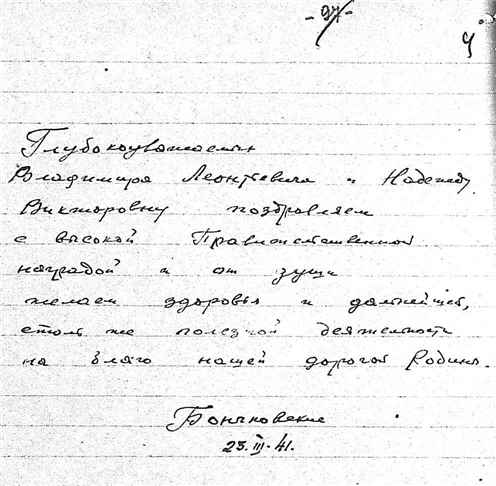 - 97 -
4
Глубокоуважаемых
Владимира Леонтьевича и Надежду
Викторовну поздравляем
с высокой Правительственной
наградой и от души
желаем здоровья и дальнейшей,
столь же полезной деятельности
на благо нашей дорогой Родины.
23.III.41.